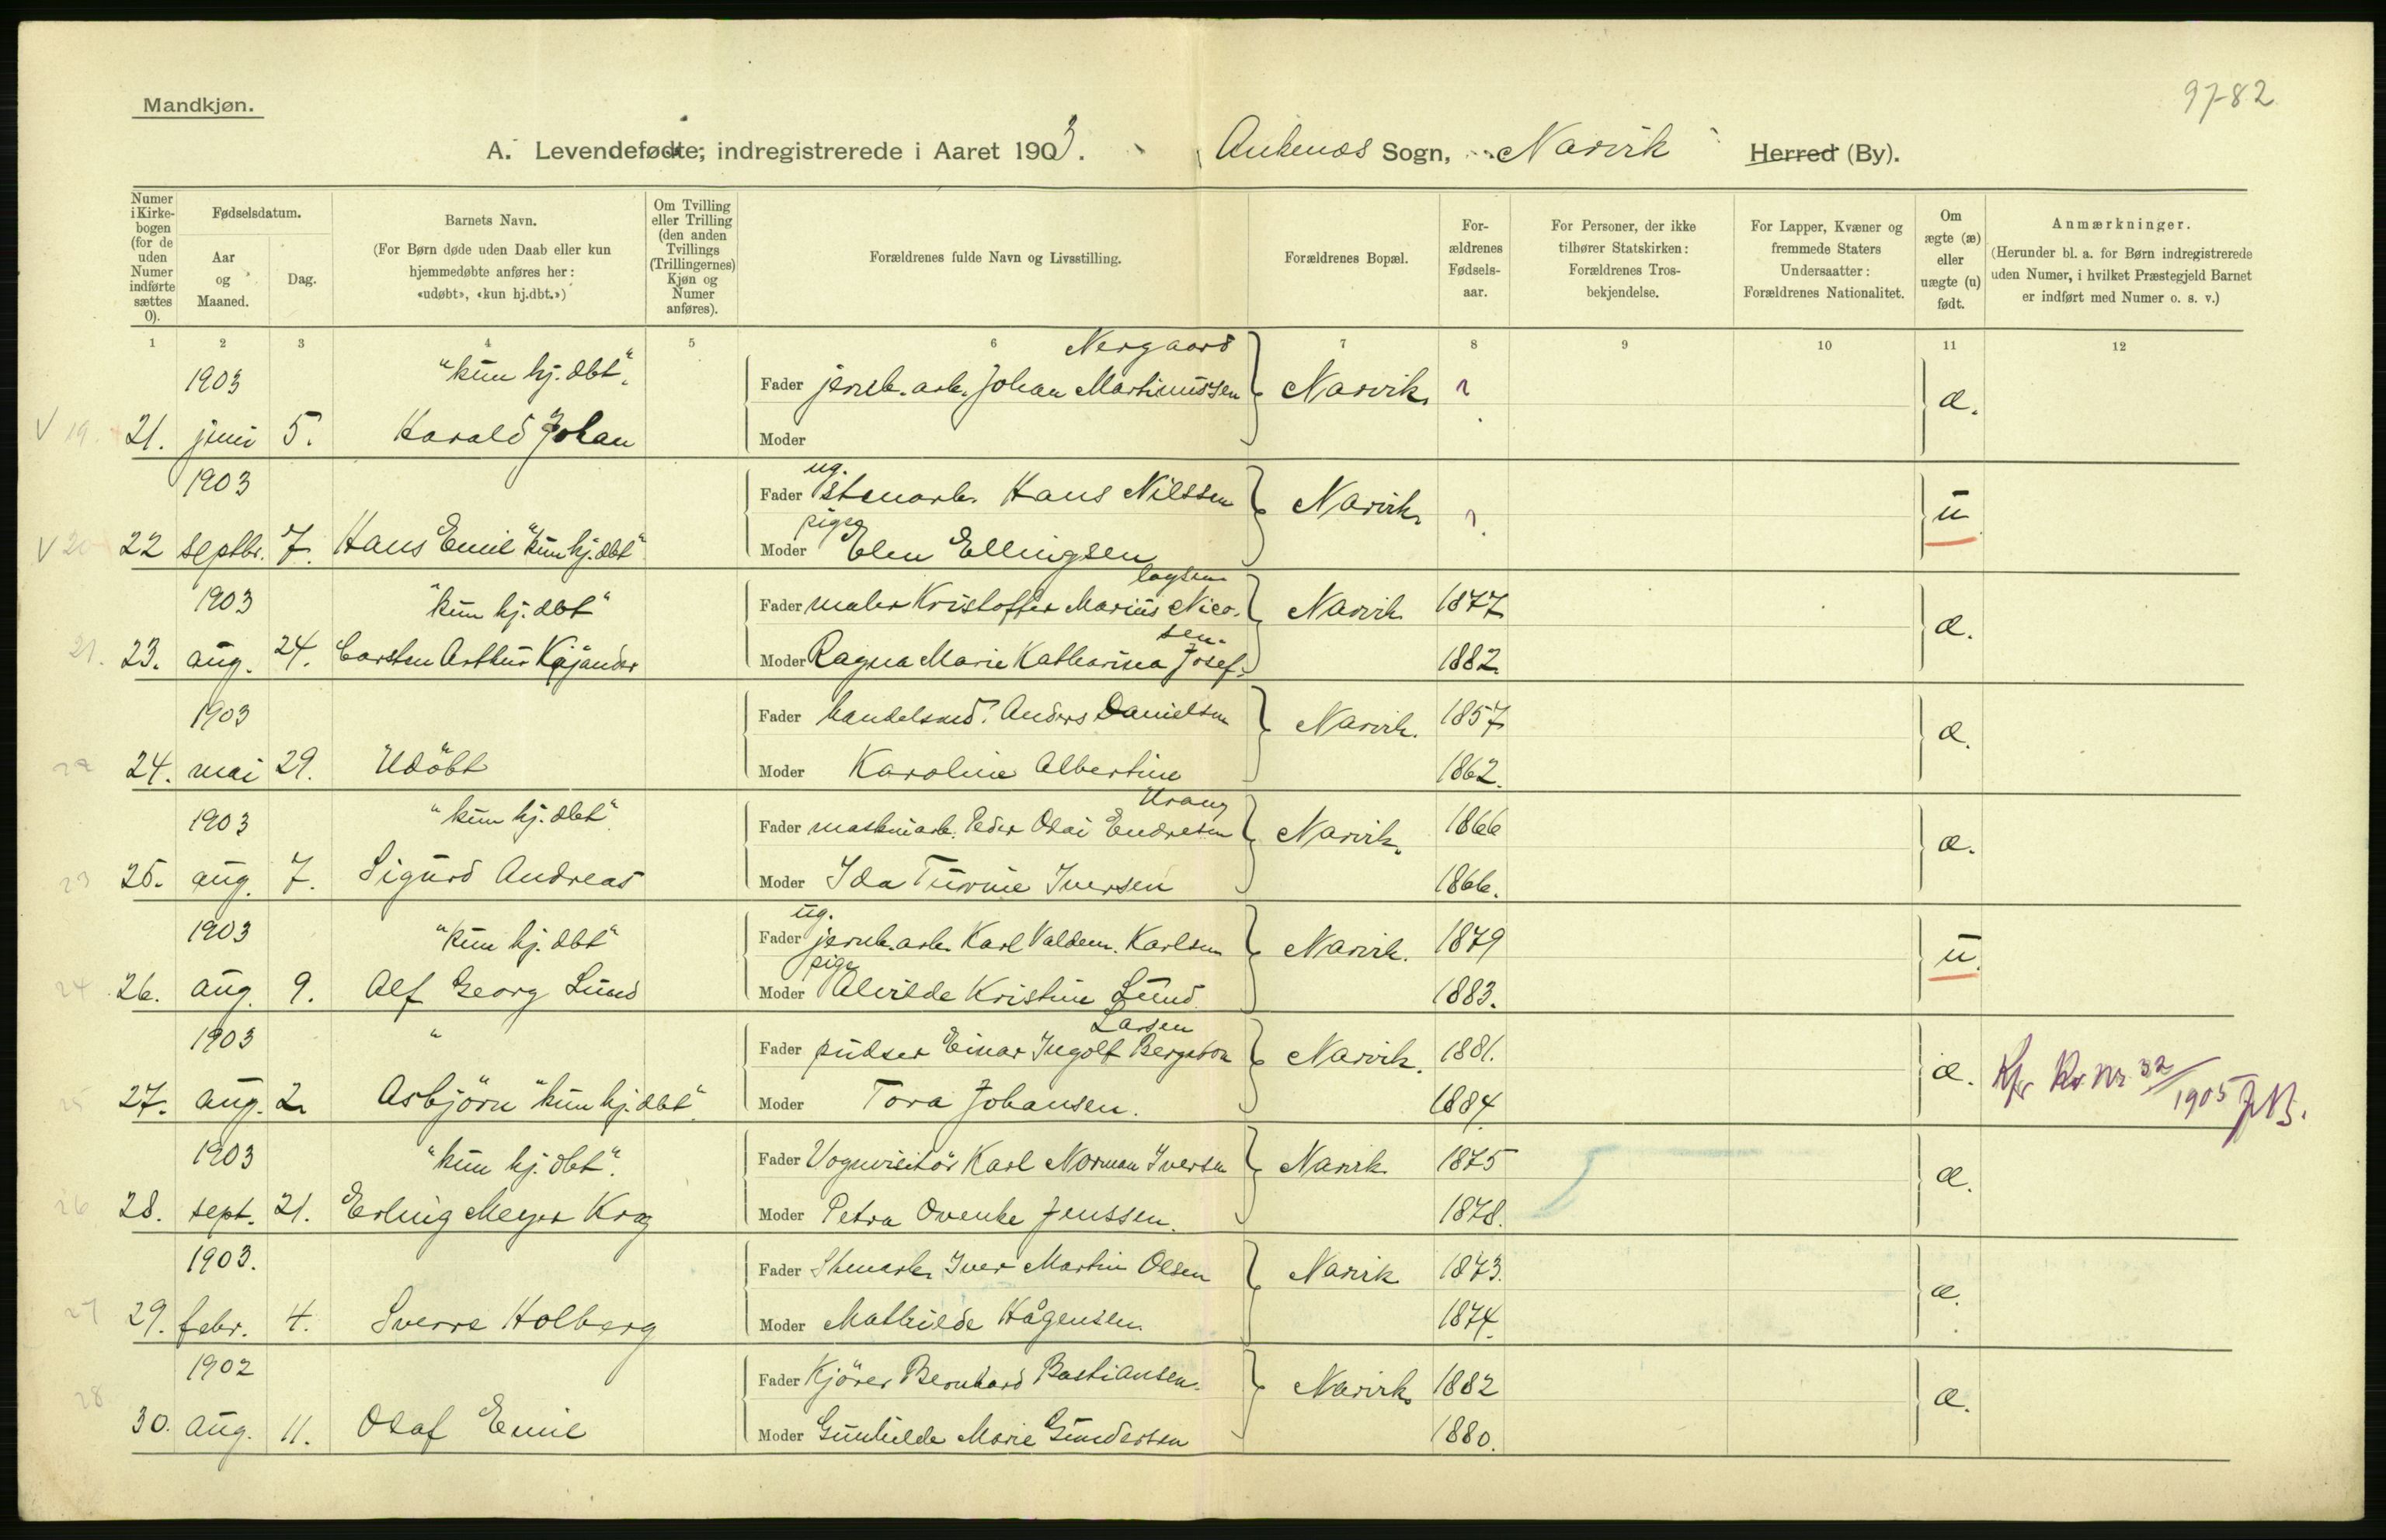 97-82
Mandkjøn.
A. Levendefødte, indregistrerede i Aaret 1903. Ankenæs Sogn, Narvik Herred (By).
Numer i Kirkebogen (for de uden Numer indførte sættes 0).
Fødselsdatum.
Aar og Maaned.
Dag.
Barnets Navn.
(For Børn døde uden Daab eller kun hjemmedøbte anføres her: «udøbt», «kun hj.dbt.»)
Om Tvilling eller Trilling (den anden Tvillings (Trillingernes) Kjøn og Numer anføres).
Forældrenes fulde Navn og Livsstilling.
Forældrenes Bopæl.
Forældrenes Fødselsaar.
For Personer, der ikke tilhører Statskirken: Forældrenes Trosbekjendelse.
For Lapper, Kvæner og fremmede Staters Undersaatter: Forældrenes Nationalitet.
Om ægte (æ) eller uægte (u) født.
Anmærkninger.
(Herunder bl. a. for Børn indregistrerede uden Numer, i hvilket Præstegjeld Barnet er indført med Numer o. s. v.)
1 2 3 4 5 6 7 8 9 10 11 12
Nergaard
1903 "kun hj. dbt". Fader jernb. arb. Johan Martinussen Narvik ? æ.
V 19. 21. juni 5. Harald Johan Moder
ug.
1903 Fader stenarb. Hans Nilssen Narvik ? u
pige
V 20 22 septbr. 7. Hans Emil "kun hj. dbt" Moder Elen Ellingsen
laysen
1903 "kun hj. dbt" Fader maler Kristoffer Marius Nico- Narvik 1877 æ.
sen.
21. 23. aug. 24. Carsten Arthur Kajander Moder Ragna Marie Katharina Josef- 1882
1903 Fader handelsmd. Anders Danielsen Narvik. 1857 æ.
22 24. mai 29. Udöbt Moder Karoline Albertine 1862.
Urang
1903 "kun hj. dbt" Fader maskinarb. Peder Olai Endresen Narvik. 1866 æ.
23 25. aug. 7. Sigurd Andreas Moder Ida Iversen 1866.
ug.
1903 "kun hj. dbt" Fader jernb. arb. Karl Valdem. Karlsen Narvik. 1879 u.
pige
24 26. aug. 9. Alf Georg Lund Moder Alvilde Kristine Lund 1883.
Larsen
1903 " Fader pudser Einar Ingolf Bergeton Narvik. 1881. æ. Kfr Nr 32/1905
25 27. aug. 2. Asbjörn "kun hj. dbt" Moder Tora Johansen. 1884
1903 "kun hj. dbt". Fader Vognvisitör Karl Norman Iversen Narvik 1875 æ.
26 28. sept. 21. Erling Meyer Krog Moder Petra Ovenke Jenssen. 1878.
1903. Fader Stenarb. Iver Martin Olsen Narvik 1873. æ.
27 29. febr. 4. Sverre Holberg Moder Mathilde Hågensen. 1874.
1902 Fader Kjörer Bernhard Bastiansen. Narvik 1882 æ.
28 30. aug. 11. Olaf Emil Moder Gunhilde Marie Gundersen 1880.